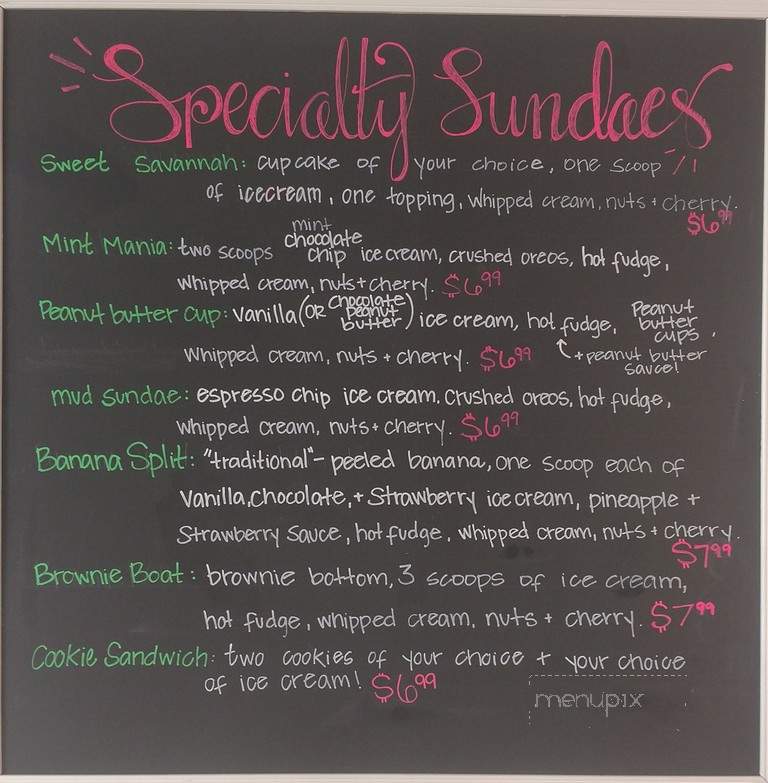 Specialty Sundaes
Sweet Savannah: cupcake of your choice, one scoop
of icecream, one topping, whipped cream, nuts + cherry.
$6.99
Mint Mania: two scoops mint chocolate chip ice cream, crushed oreos, hot fudge,
whipped cream, nuts + cherry. $6.99
Peanut butter cup: vanilla (OR chocolate peanut butter) ice cream, hot fudge, Peanut butter cups,
whipped cream, nuts + cherry. $6.99 + peanut butter sauce!
mud sundae: espresso chip ice cream. crushed oreos, hot fudge,
whipped cream, nuts + cherry. $6.99
Banana Split: "traditional" - peeled banana, one scoop each of
Vanilla, Chocolate, + Strawberry ice cream, pineapple +
Strawberry Sauce, hot fudge, whipped cream, nuts + cherry.
$7.99
Brownie Boat: brownie bottom, 3 scoops of ice cream,
hot fudge, whipped cream, nuts + cherry. $7.99
Cookie Sandwich: two cookies of your choice + your choice
of ice cream! $6.99
menupix